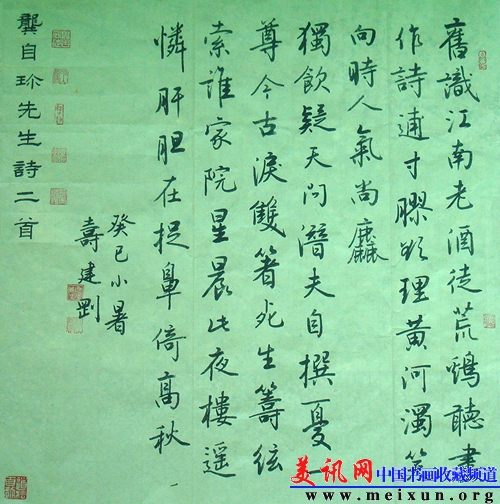 舊識江南老酒徒荒鷄聽盡
作詩逋寸膠欲理黃河濁笑
向時人氣尚麤
獨飲疑天問潛夫自撰憂一
尊今古淚雙箸死生籌絃
索誰家院星晨此夜樓遥
憐肝胆在捉鼻倚高秋
癸巳小暑
壽建剛
龔自珍先生詩二首
美讯网 中国书画收藏频道
www.meixun.org.